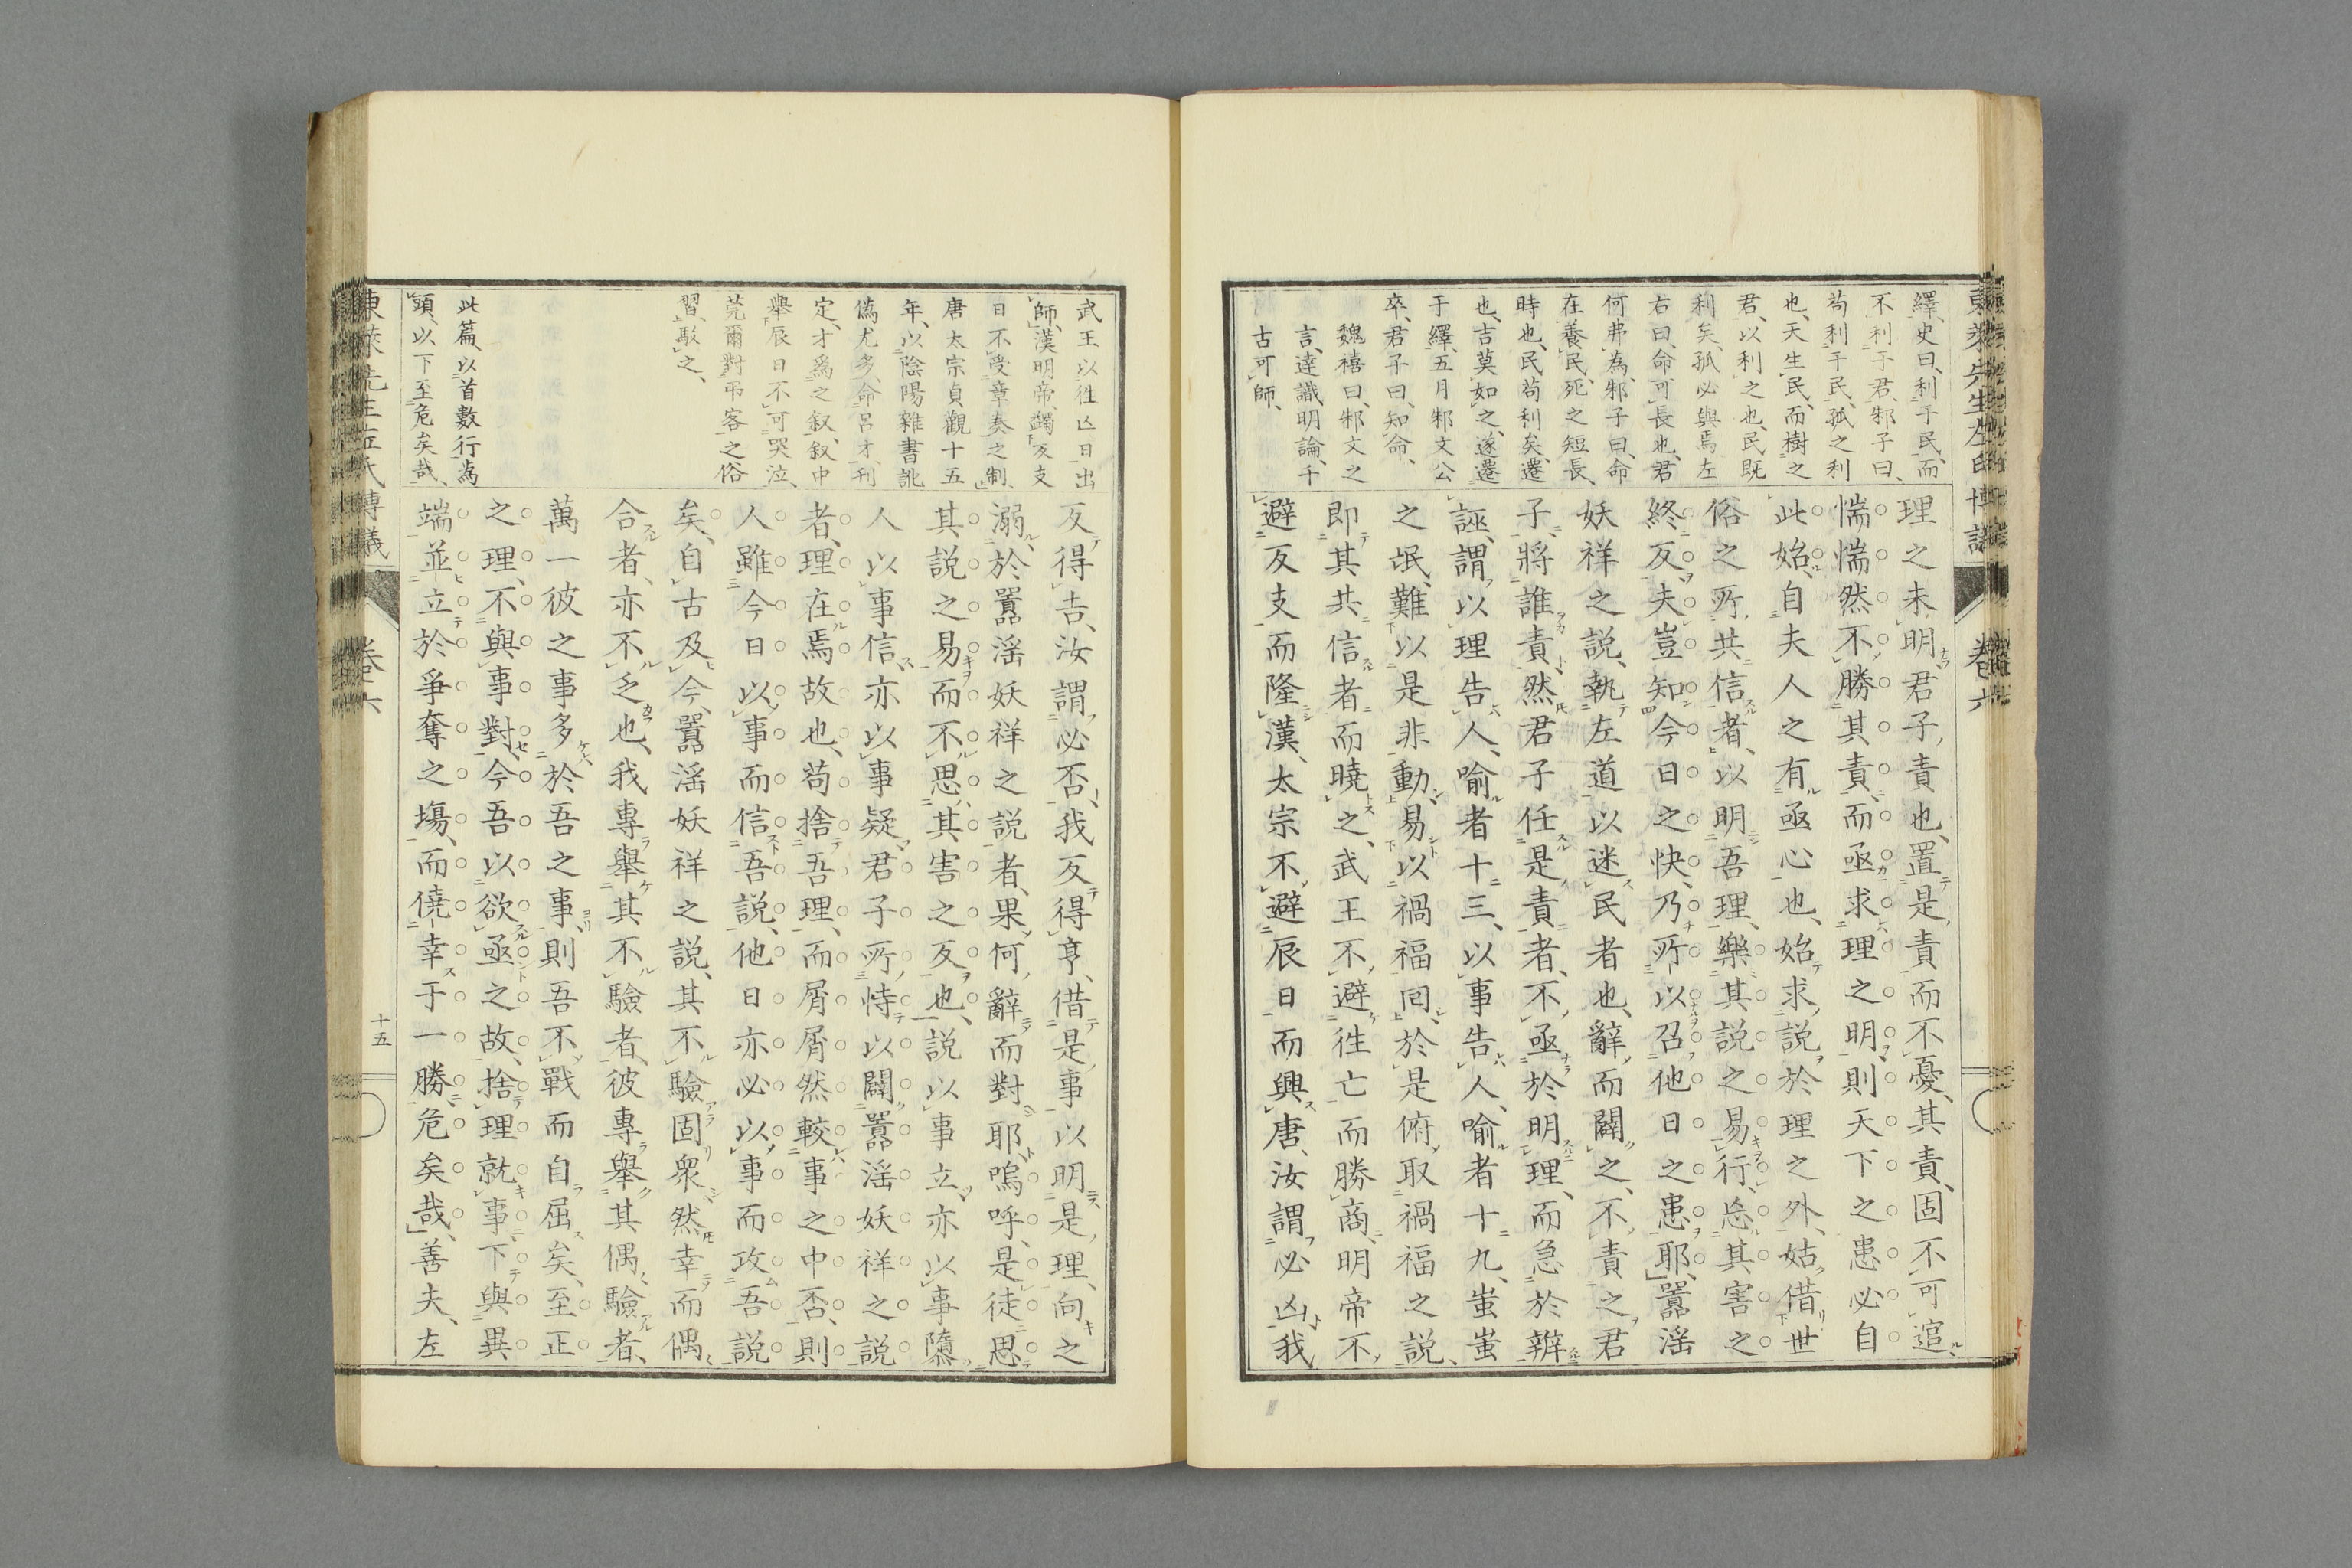 東萊先生左氏博議
卷六
繹、史曰、利于民、而
不利于君、邾子曰、
苟利于民、孤之利
也、天生民、而樹之
君、以利之也、民既
利矣、孤必與焉、左
右曰、命可長也、君
何弗為、邾子曰、命
在養民、死之短長、
時也、民苟利矣、遷
也、吉莫如之、遂遷
于繹、五月邾文公
卒、君子曰、知命、
魏禧曰、邾文之
言、達識明論、千
古可師、
理之未明、君子責也、置是責而不憂、其責、固不可逭、
惴惴然不勝其責、而亟求理之明、則天下之患必自
此始、自夫人之有亟心也、始求說於理之外、姑借世
俗之所共信者、以明吾理、樂其說之易行、忘其害之
終反、夫豈知今日之快、乃所以召他日之患耶、嚚滛
妖祥之說、執左道以迷民者也、辭而闢之、不責之君
子、將誰責、然君子任是責者、不亟於明理、而急於辨
誣、謂以理告人、喻者十三、以事告人、喻者十九、蚩蚩
之氓、難以是非動、易以禍福回、於是俯取禍福之說、
即其共信者而曉之、武王不避往亡而勝商、明帝不
避反支而隆漢、太宗不避辰日而興唐、汝謂必凶、我
武王以往亡日出
師、漢明帝、蠲反支
日不受章奏之制、
唐太宗貞觀十五
年、以陰陽雜書訛
偽尤多、命呂才、刊
定、才為之叙、叙中
舉辰日不可哭泣、
莞爾對弔客之俗
習、駁之、
此篇、以首數行為
頭、以下至危矣哉、
反得吉、汝謂必否、我反得亨、借是事以明是理、向之
溺於嚚滛妖祥之說者、果何辭而對耶、嗚呼、是徒思
其說之易、而不思其害之反也、說以事立、亦以事隳
人以事信、亦以事疑、君子所恃以闢嚚滛妖祥之說
者、理在焉故也、苟捨吾理、而屑屑然較事之中否、則
人雖今日以事而信吾說、他日亦必以事而攻吾說
矣、自古及今、嚚滛妖祥之說、其不驗固衆、然幸而偶
合者、亦不乏也、我專舉其不驗者、彼專舉其偶驗者、
萬一彼之事多於吾之事、則吾不戰而自屈矣、至正
之理、不與事對、今吾以欲亟之故、捨理就事、下與異
端並立於爭奪之塲、而僥幸于一勝、危矣哉、善夫、左
東萊先生左氏博議
卷六
十五